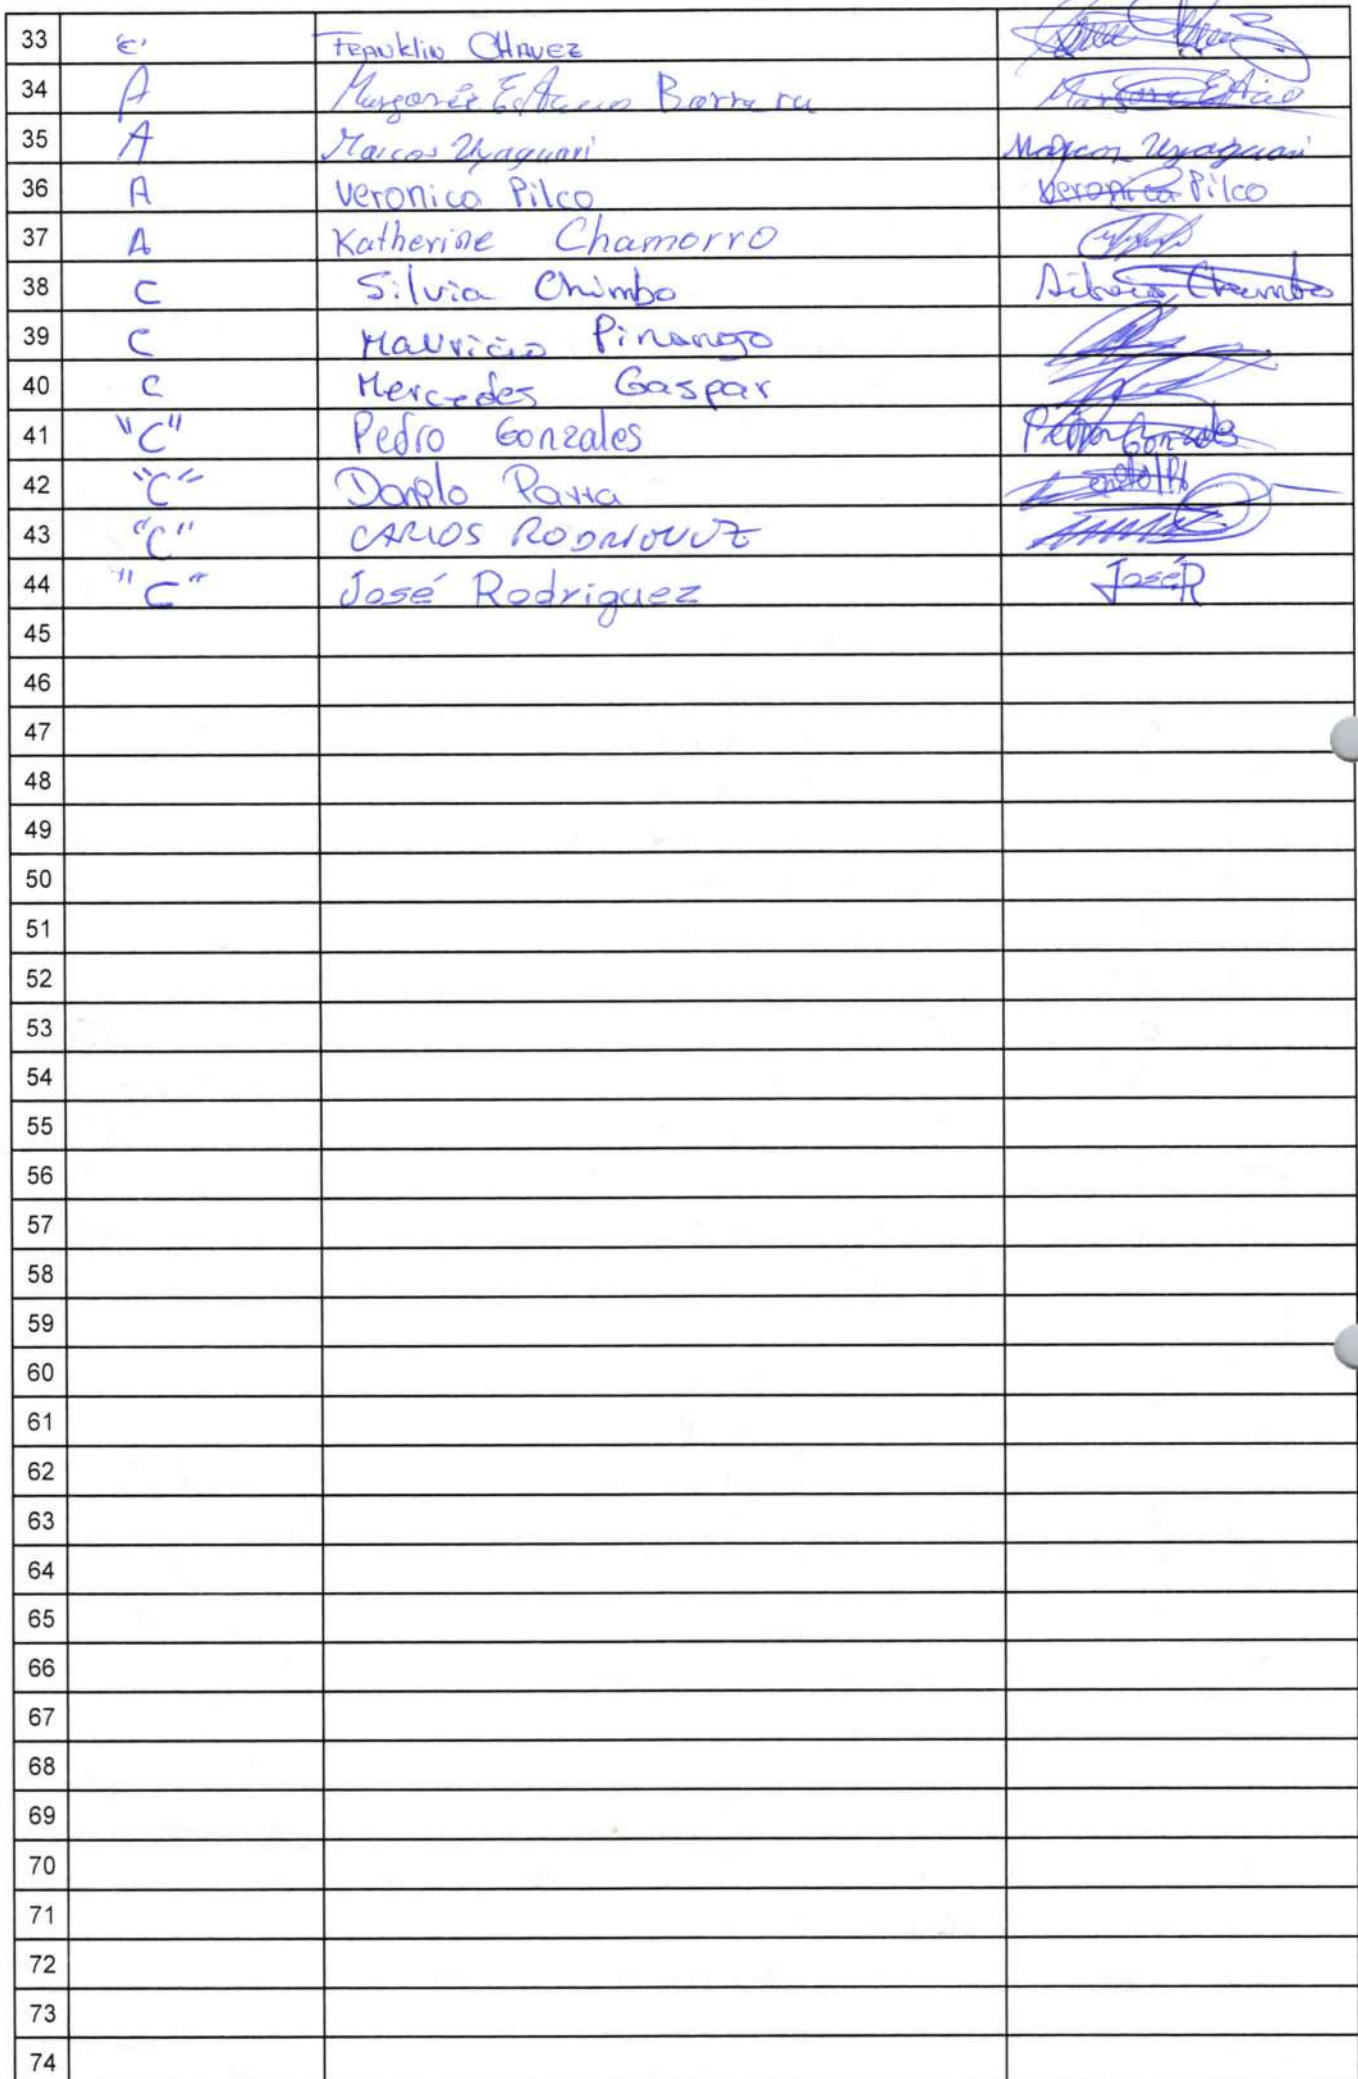 33 "C" FRANKLIN CHAVEZ
34 A Barrera
35 A Marcos Uyaguari Marcos Uyaguari
36 A Veronica Pilco Veronica Pilco
37 A Katherine Chamorro
38 C Silvia Chimbo Silvia Chimbo
39 C Mauricio Pinango
40 C Mercedes Gaspar
41 "C" Pedro Gonzales Pedro Gonzales
42 "C" Danilo Parra
43 "C" CARLOS RODRIGUEZ
44 "C" José Rodriguez José R
45
46
47
48
49
50
51
52
53
54
55
56
57
58
59
60
61
62
63
64
65
66
67
68
69
70
71
72
73
74